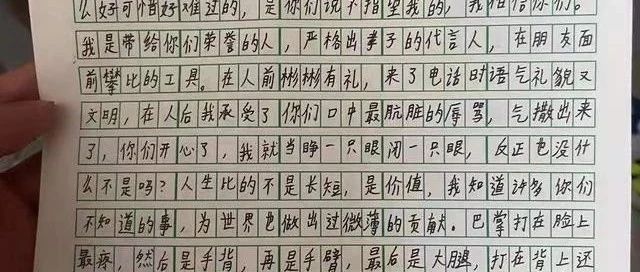 么好可惜好难过的，是你们说不指望我的，我相信你们。
我是带给你们荣誉的人，严格出孝子的代言人，在朋友面
前攀比的工具。在人前彬彬有礼，来了电话时语气礼貌又
文明，在人后我承受了你们口中最肮脏的辱骂，气撒出来
了，你们开心了，我就当睁一只眼闭一只眼，反正也没什
么不是吗？人生比的不是长短，是价值，我知道许多你们
不知道的事，为世界也做出过微薄的贡献。巴掌打在脸上
最疼，然后是手背，再是手臂，最后是大腿，打在背上还